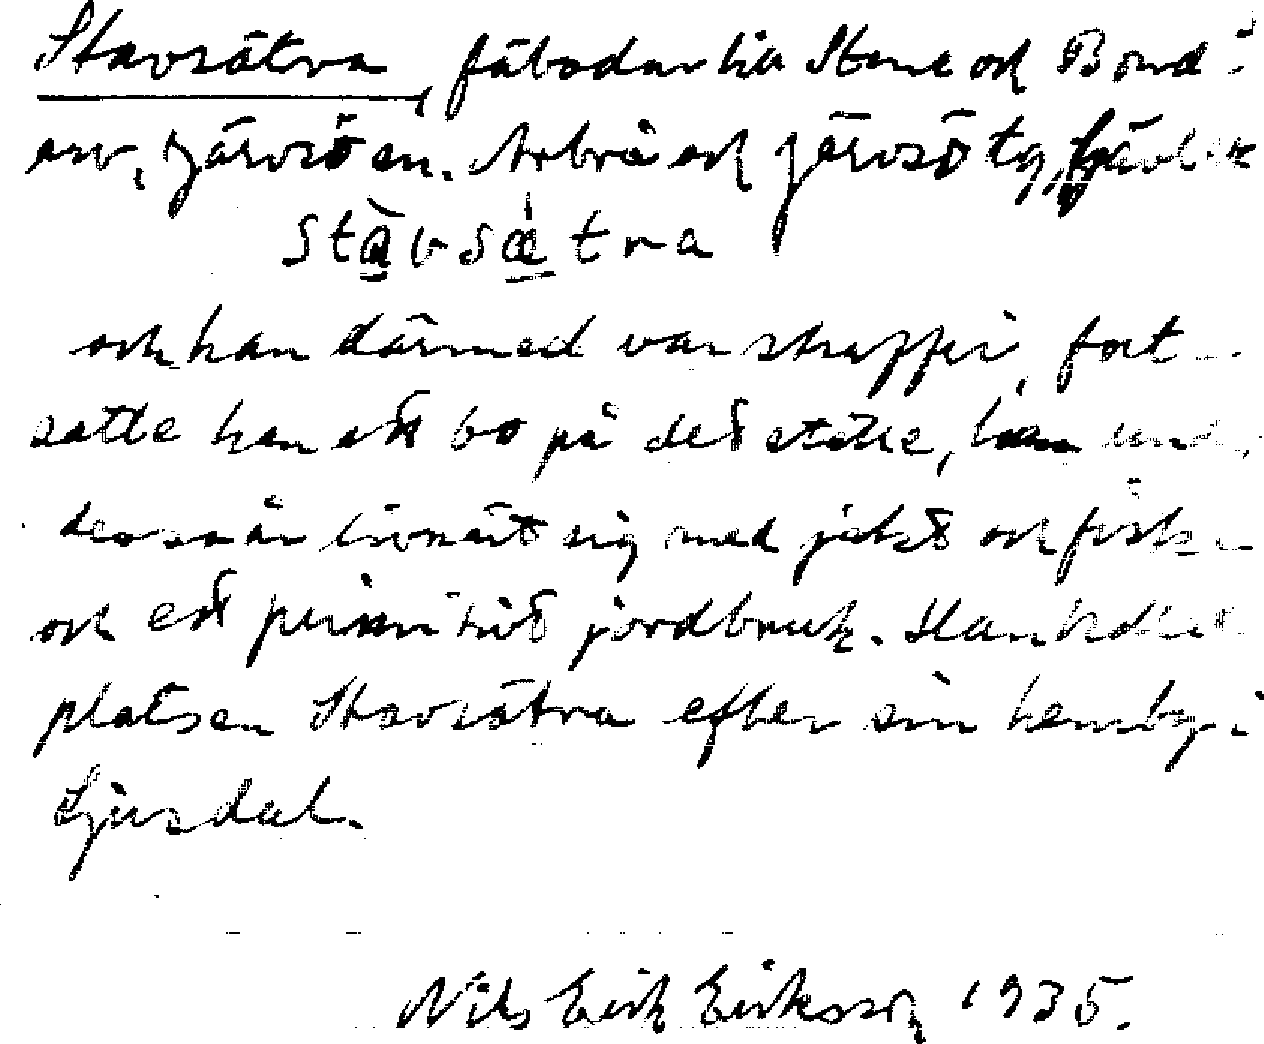 Stavsätra, fäbodar till Stene och Bond-
arv, Järvsö sn. Arbrå och Järvsö tg, Gävleb
stàvsætra
och han därmed var straffri, fort-
satte han att bo på det stället, han und
dessa år livnärt sig med jakt och fiske
och ett primitivt jordbruk. Han kallade
platsen Stavsätra efter sin hemby i
Ljusdal.
Nils Erik Eriksson 1935.